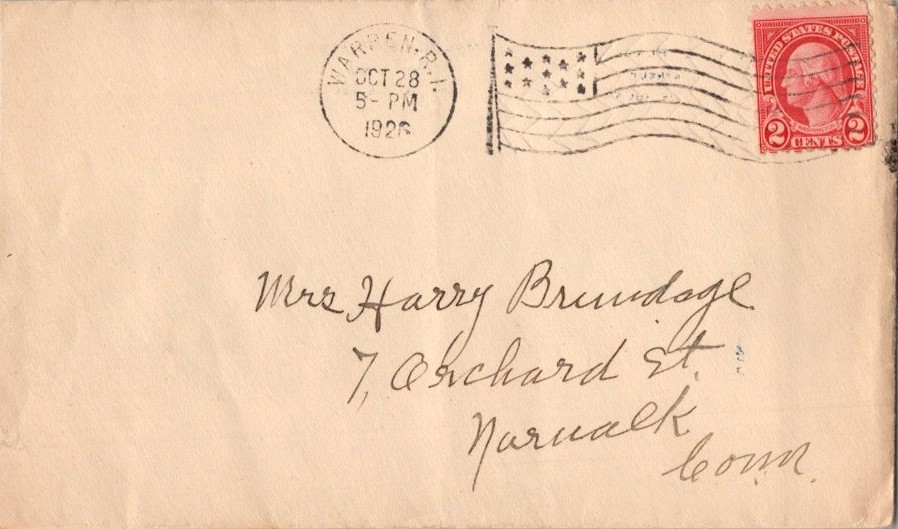 WARREN. R.I.
OCT 28
5- PM
1926
UNITED STATES POSTAGE
2 CENTS 2
Mrs Harry Brundage
7, Orchard St.
Norwalk
Conn.